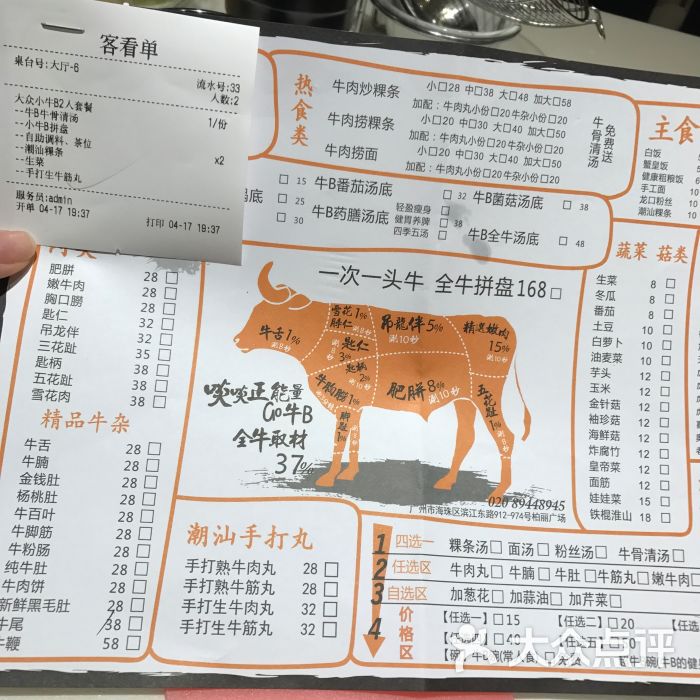 客看单
桌台号:大厅-6
流水号:33
人数:2
大众小牛B2人套餐 1/份
--牛B牛骨清汤
--小牛B拼盘
--自助调料、茶位 x2
--潮汕粿条
--生菜
--手打生牛筋丸
服务员:admin
开单 04-17 19:37 打印 04-17 19:37
热食类
牛肉炒粿条 小口28 中口38 大口48 加大口58
加配:牛肉丸小份口20牛杂小份口20
牛肉捞粿条 小口20 中口30 大口40 加大口50
加配:牛肉丸小份口20牛杂小份口20
牛肉捞面 小口20 中口30 大口40 加大口50
加配:牛肉丸小份口20牛杂小份口20
牛骨清汤
免费送
主食
白饭
蟹皇饭
健康粗粮饭
手工面
龙口粉丝 10
潮汕粿条 10
锅底 15
25
牛B番茄汤底 32
牛B菌菇汤底 38
牛B药膳汤底 30
轻盈瘦身
健胃养脾
四季五汤 38
牛B全牛汤底 48
肥胼 28
嫩牛肉 28
胸口朥 28
匙仁 32
吊龙伴 32
三花趾 35
匙柄 35
五花趾 38
雪花肉 38
精品牛杂
牛舌 28
牛腩 28
金钱肚 28
杨桃肚 28
牛百叶 28
牛脚筋 28
牛粉肠 28
纯牛肚 28
牛肉饼 28
新鲜黑毛肚 28
牛尾 38
牛鞭 58
一次一头牛 全牛拼盘168口
雪花肼仁 1% 涮8秒
吊龍伴 5% 涮10秒
精選嫩肉 15% 涮10秒
牛舌1% 涮8秒
匙仁 3% 涮8秒
匙柄 2% 涮8秒
牛胸朥1%
肥胼8% 涮10秒
脚趾1%
五花趾1% 涮8秒
啖啖正能量
Go牛B
全牛取材
37%
020 89448945
广州市海珠区滨江东路912-974号柏丽广场
蔬菜 菇类
生菜 8
冬瓜 8
番茄 8
土豆 10
白萝卜 10
油麦菜 10
芋头 12
玉米 12
金针菇 12
袖珍菇 12
海鲜菇 12
炸腐竹 12
皇帝菜 12
面筋 12
娃娃菜 15
铁棍淮山 18
潮汕手打丸
手打熟牛肉丸 28
手打熟牛筋丸 28
手打生牛肉丸 32
手打生牛筋丸 32
1 四选一 粿条汤口 面汤口 粉丝汤口 牛骨清汤口
2 任选区 牛肉丸口 牛腩口 牛肚口 牛筋丸口 嫩牛肉口
3 自选区 加葱花口 加蒜油口 加芹菜口
4 价格区 【任选一】口15 【任选二】口20
大众点评